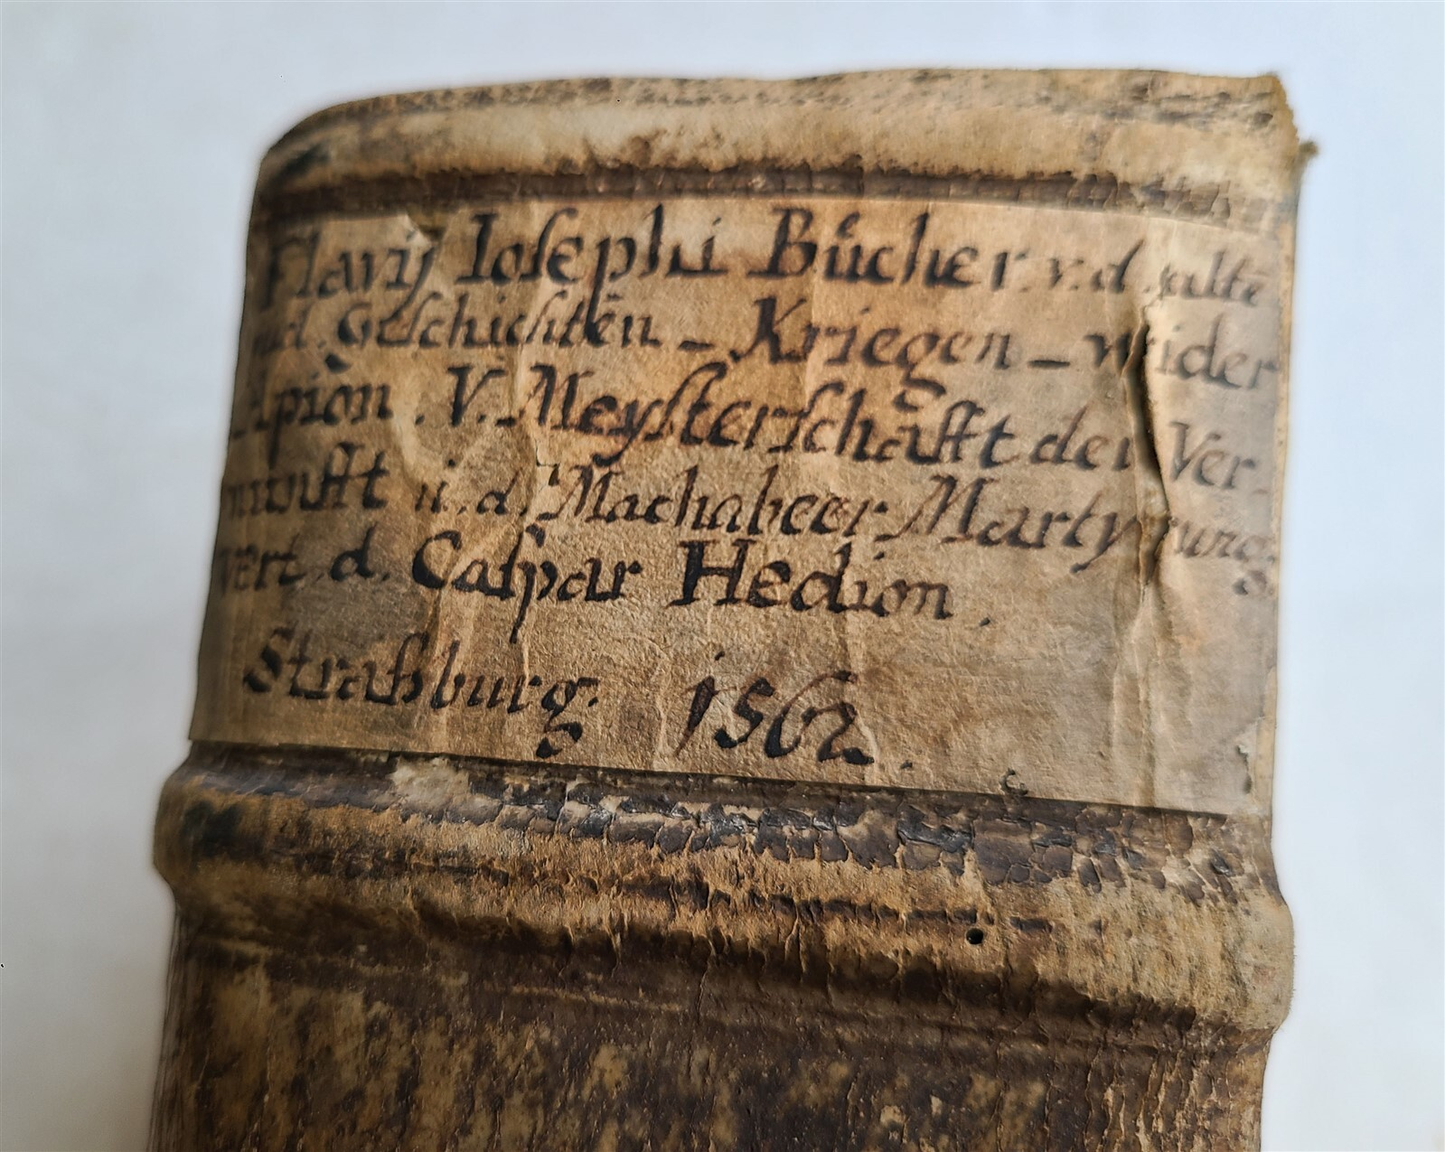 Flavij Ioſephi Bücher v. d. altē
Jüd. Geſchichten – Kriegen – wider
Apion. V. Meyſterſchafft der Ver-
nunfft u. d. Machabeer Martyrung.
vert. d. Caſpar Hedion.
Straßburg. 1562.